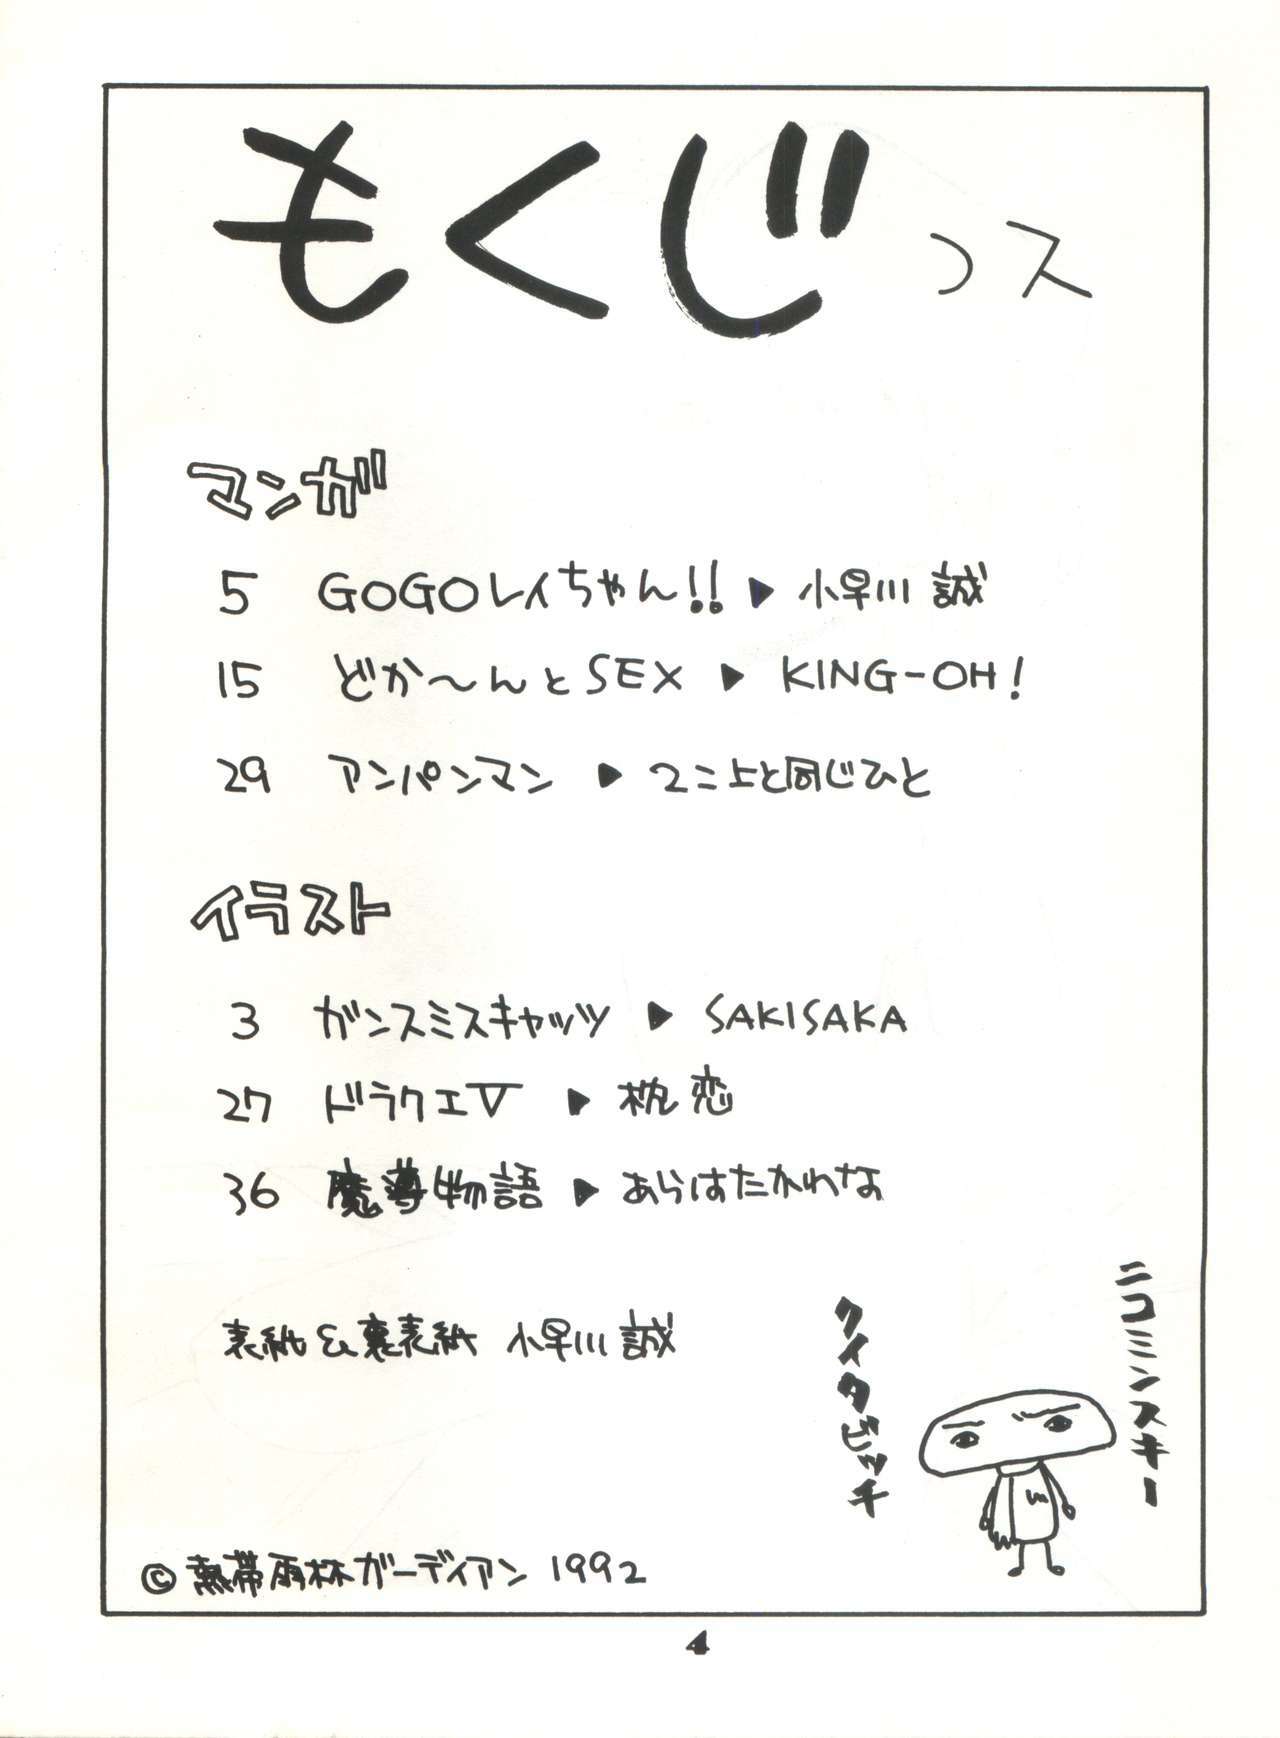 もくじっス
マンガ
5 GOGOレイちゃん!! ▶ 小早川 誠
15 どか〜んとSEX ▶ KING-OH!
29 アンパンマン ▶ 2ニ上と同じひと
イラスト
3 ガンスミスキャッツ ▶ SAKISAKA
27 ドラクエV ▶ 枕恋
36 魔導物語 ▶ あらはたかわな
表紙&裏表紙 小早川 誠
ニコミンスキー
クイタビッチ
© 熱帯雨林ガーディアン 1992
4